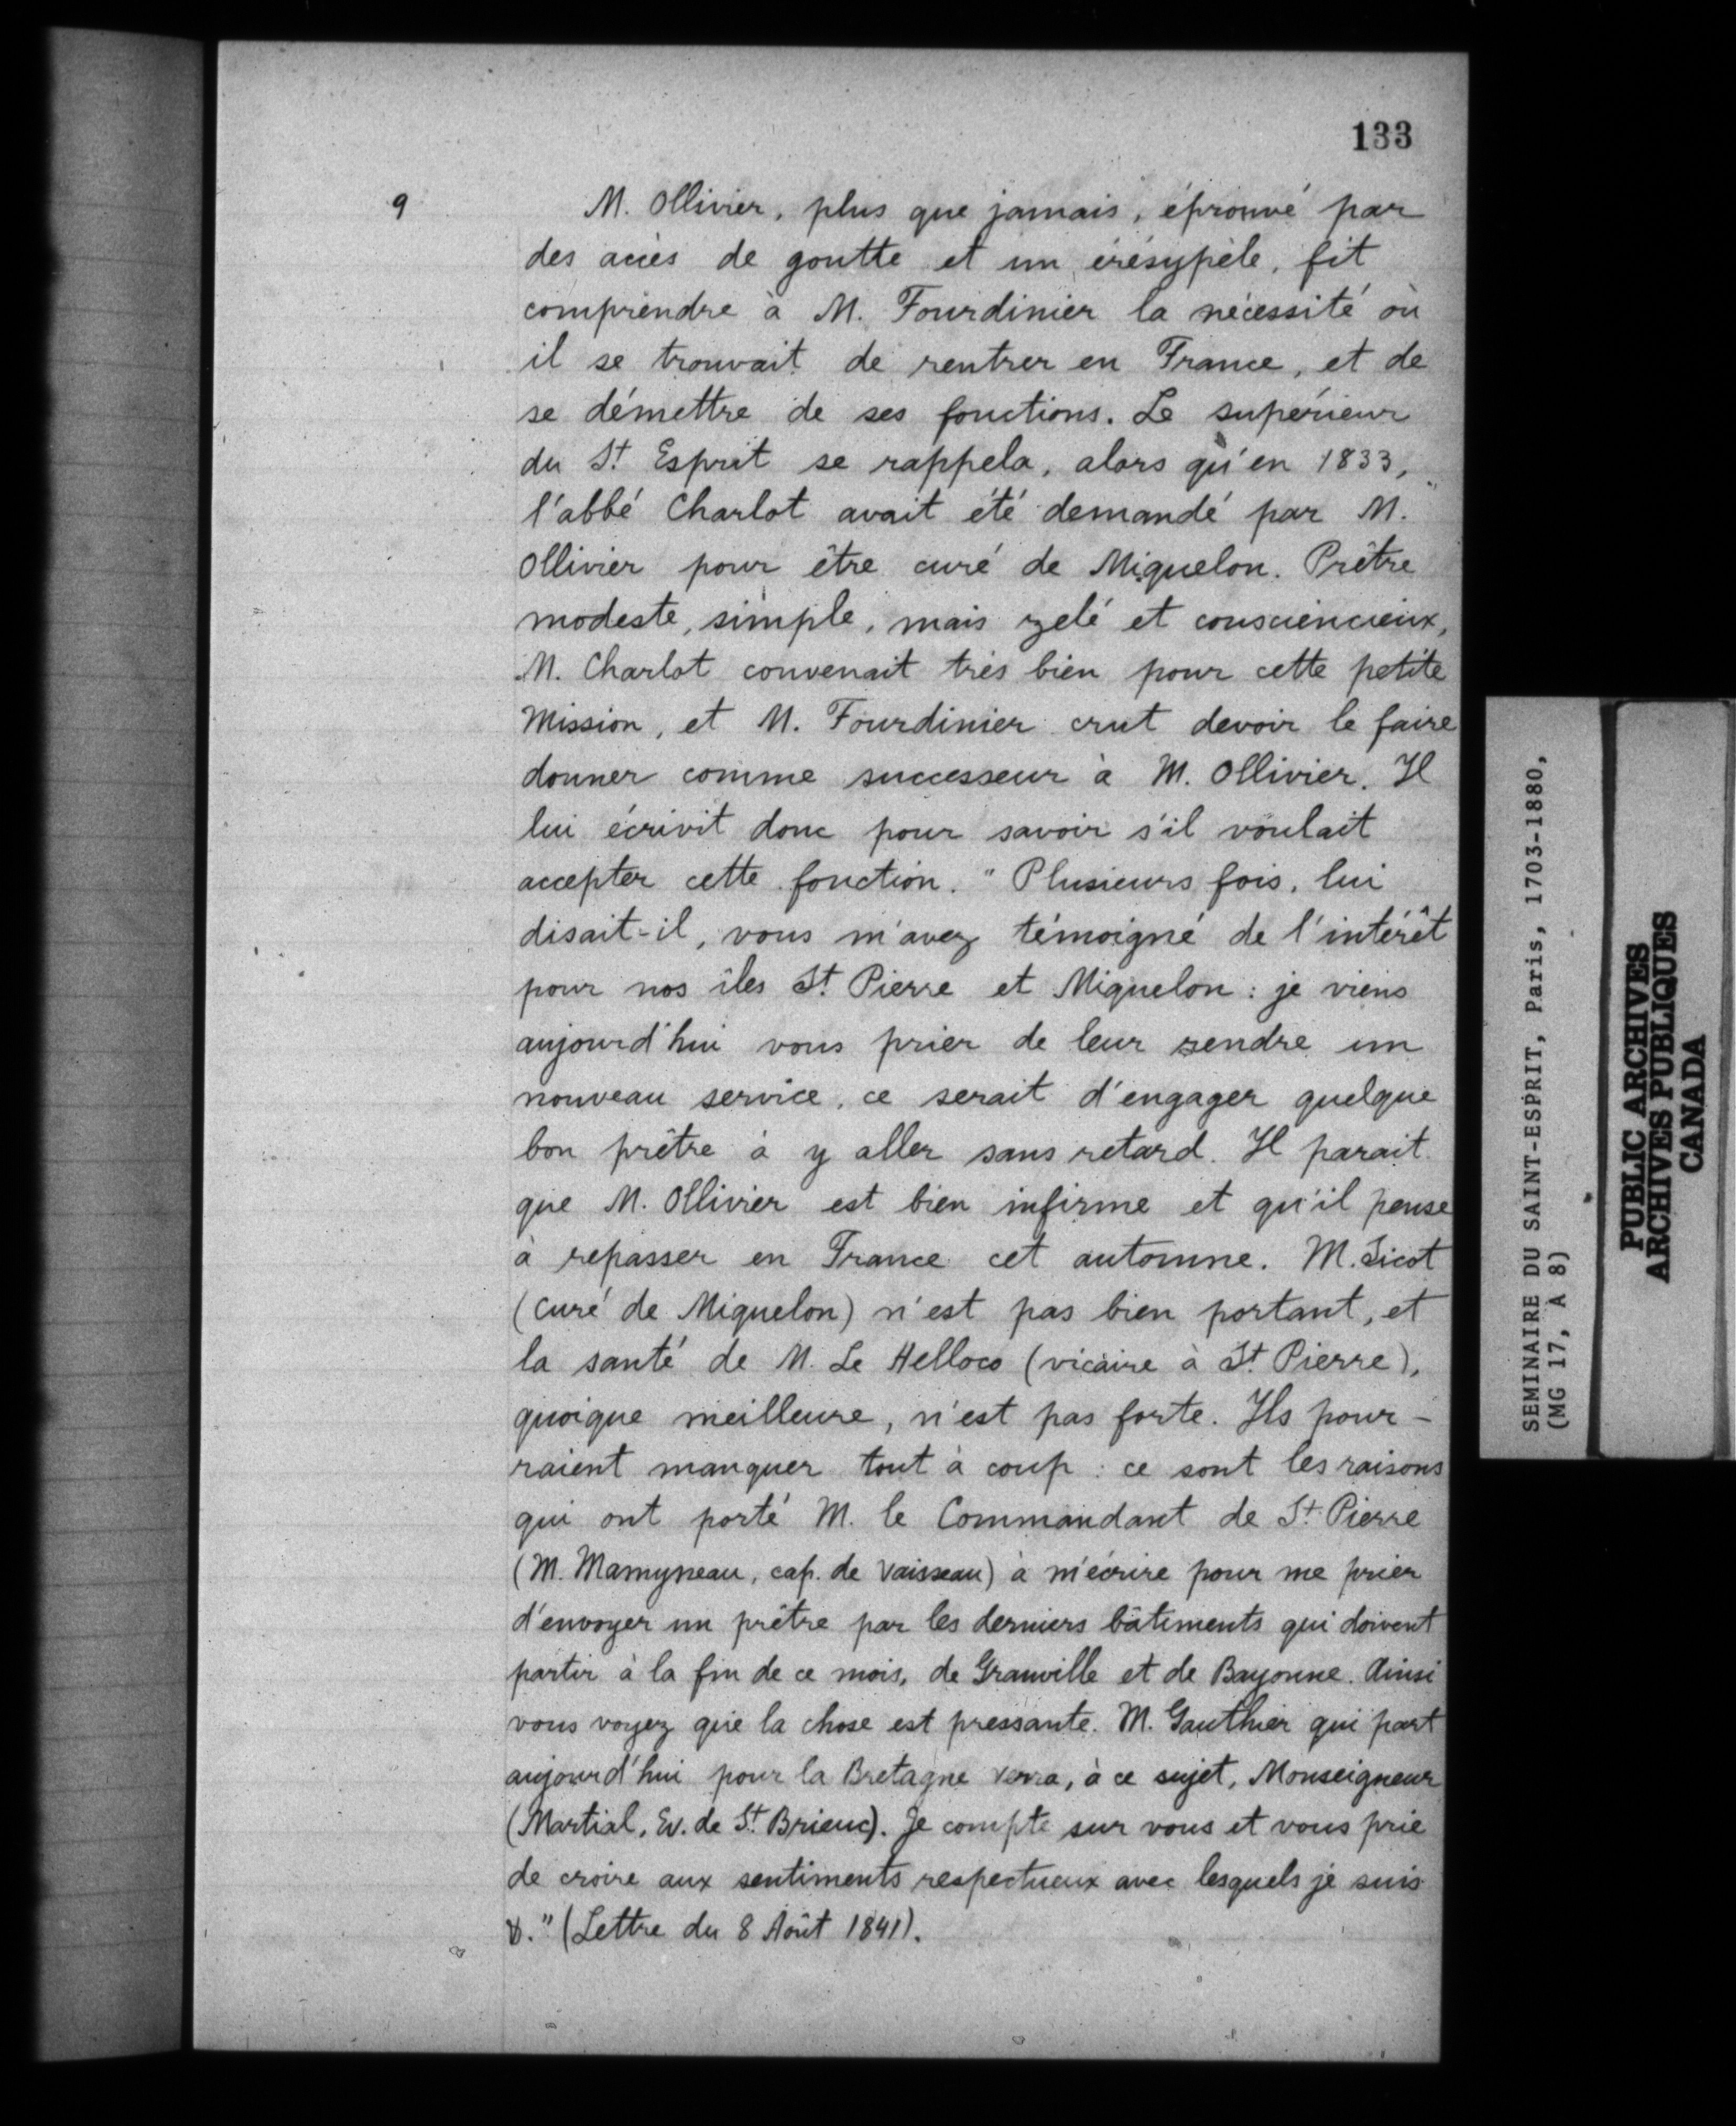 133
9
M. Ollivier, plus que jamais, éprouvé par
des accès de goutte et un érésypèle, fit
comprendre à M. Fourdinier la nécessité où
il se trouvait de rentrer en France, et de
se démettre de ses fonctions. Le supérieur
du St. Esprit se rappela, alors qu'en 1833,
l'abbé Charlot avait été demandé par M.
Ollivier pour être curé de Miquelon. Prêtre
modeste, simple, mais zelé et consciencieux,
M. Charlot convenait très bien pour cette petite
Mission, et M. Fourdinier crut devoir le faire
donner comme successeur à M. Ollivier. Il
lui écrivit donc pour savoir s'il voulait
accepter cette fonction. "Plusieurs fois, lui
disait-il, vous m'avez témoigné de l'intérêt
pour nos îles St. Pierre et Miquelon : je viens
aujourd'hui vous prier de leur rendre un
nouveau service, ce serait d'engager quelque
bon prêtre à y aller sans retard. Il parait
que M. Ollivier est bien infirme et qu'il pense
à repasser en France cet automne. M. Sicot
(curé de Miquelon) n'est pas bien portant, et
la santé de M. Le Helloco (vicaire à St. Pierre),
quoique meilleure, n'est pas forte. Ils pour-
raient manquer tout à coup : ce sont les raisons
qui ont porté M. le Commandant de St. Pierre
(M. Mamyneau, cap. de vaisseau) à m'écrire pour me prier
d'envoyer un prêtre par les derniers bâtiments qui doivent
partir à la fin de ce mois, de Granville et de Bayonne. Ainsi
vous voyez que la chose est pressante. M. Gauthier qui part
aujourd'hui pour la Bretagne verra, à ce sujet, Monseigneur
(Martial, Ev. de St. Brieuc). Je compte sur vous et vous prie
de croire aux sentiments respectueux avec lesquels je suis
&." (Lettre du 8 Août 1841).
SEMINAIRE DU SAINT-ESPRIT, Paris, 1703-1880,
(MG 17, A 8)
PUBLIC ARCHIVES
ARCHIVES PUBLIQUES
CANADA